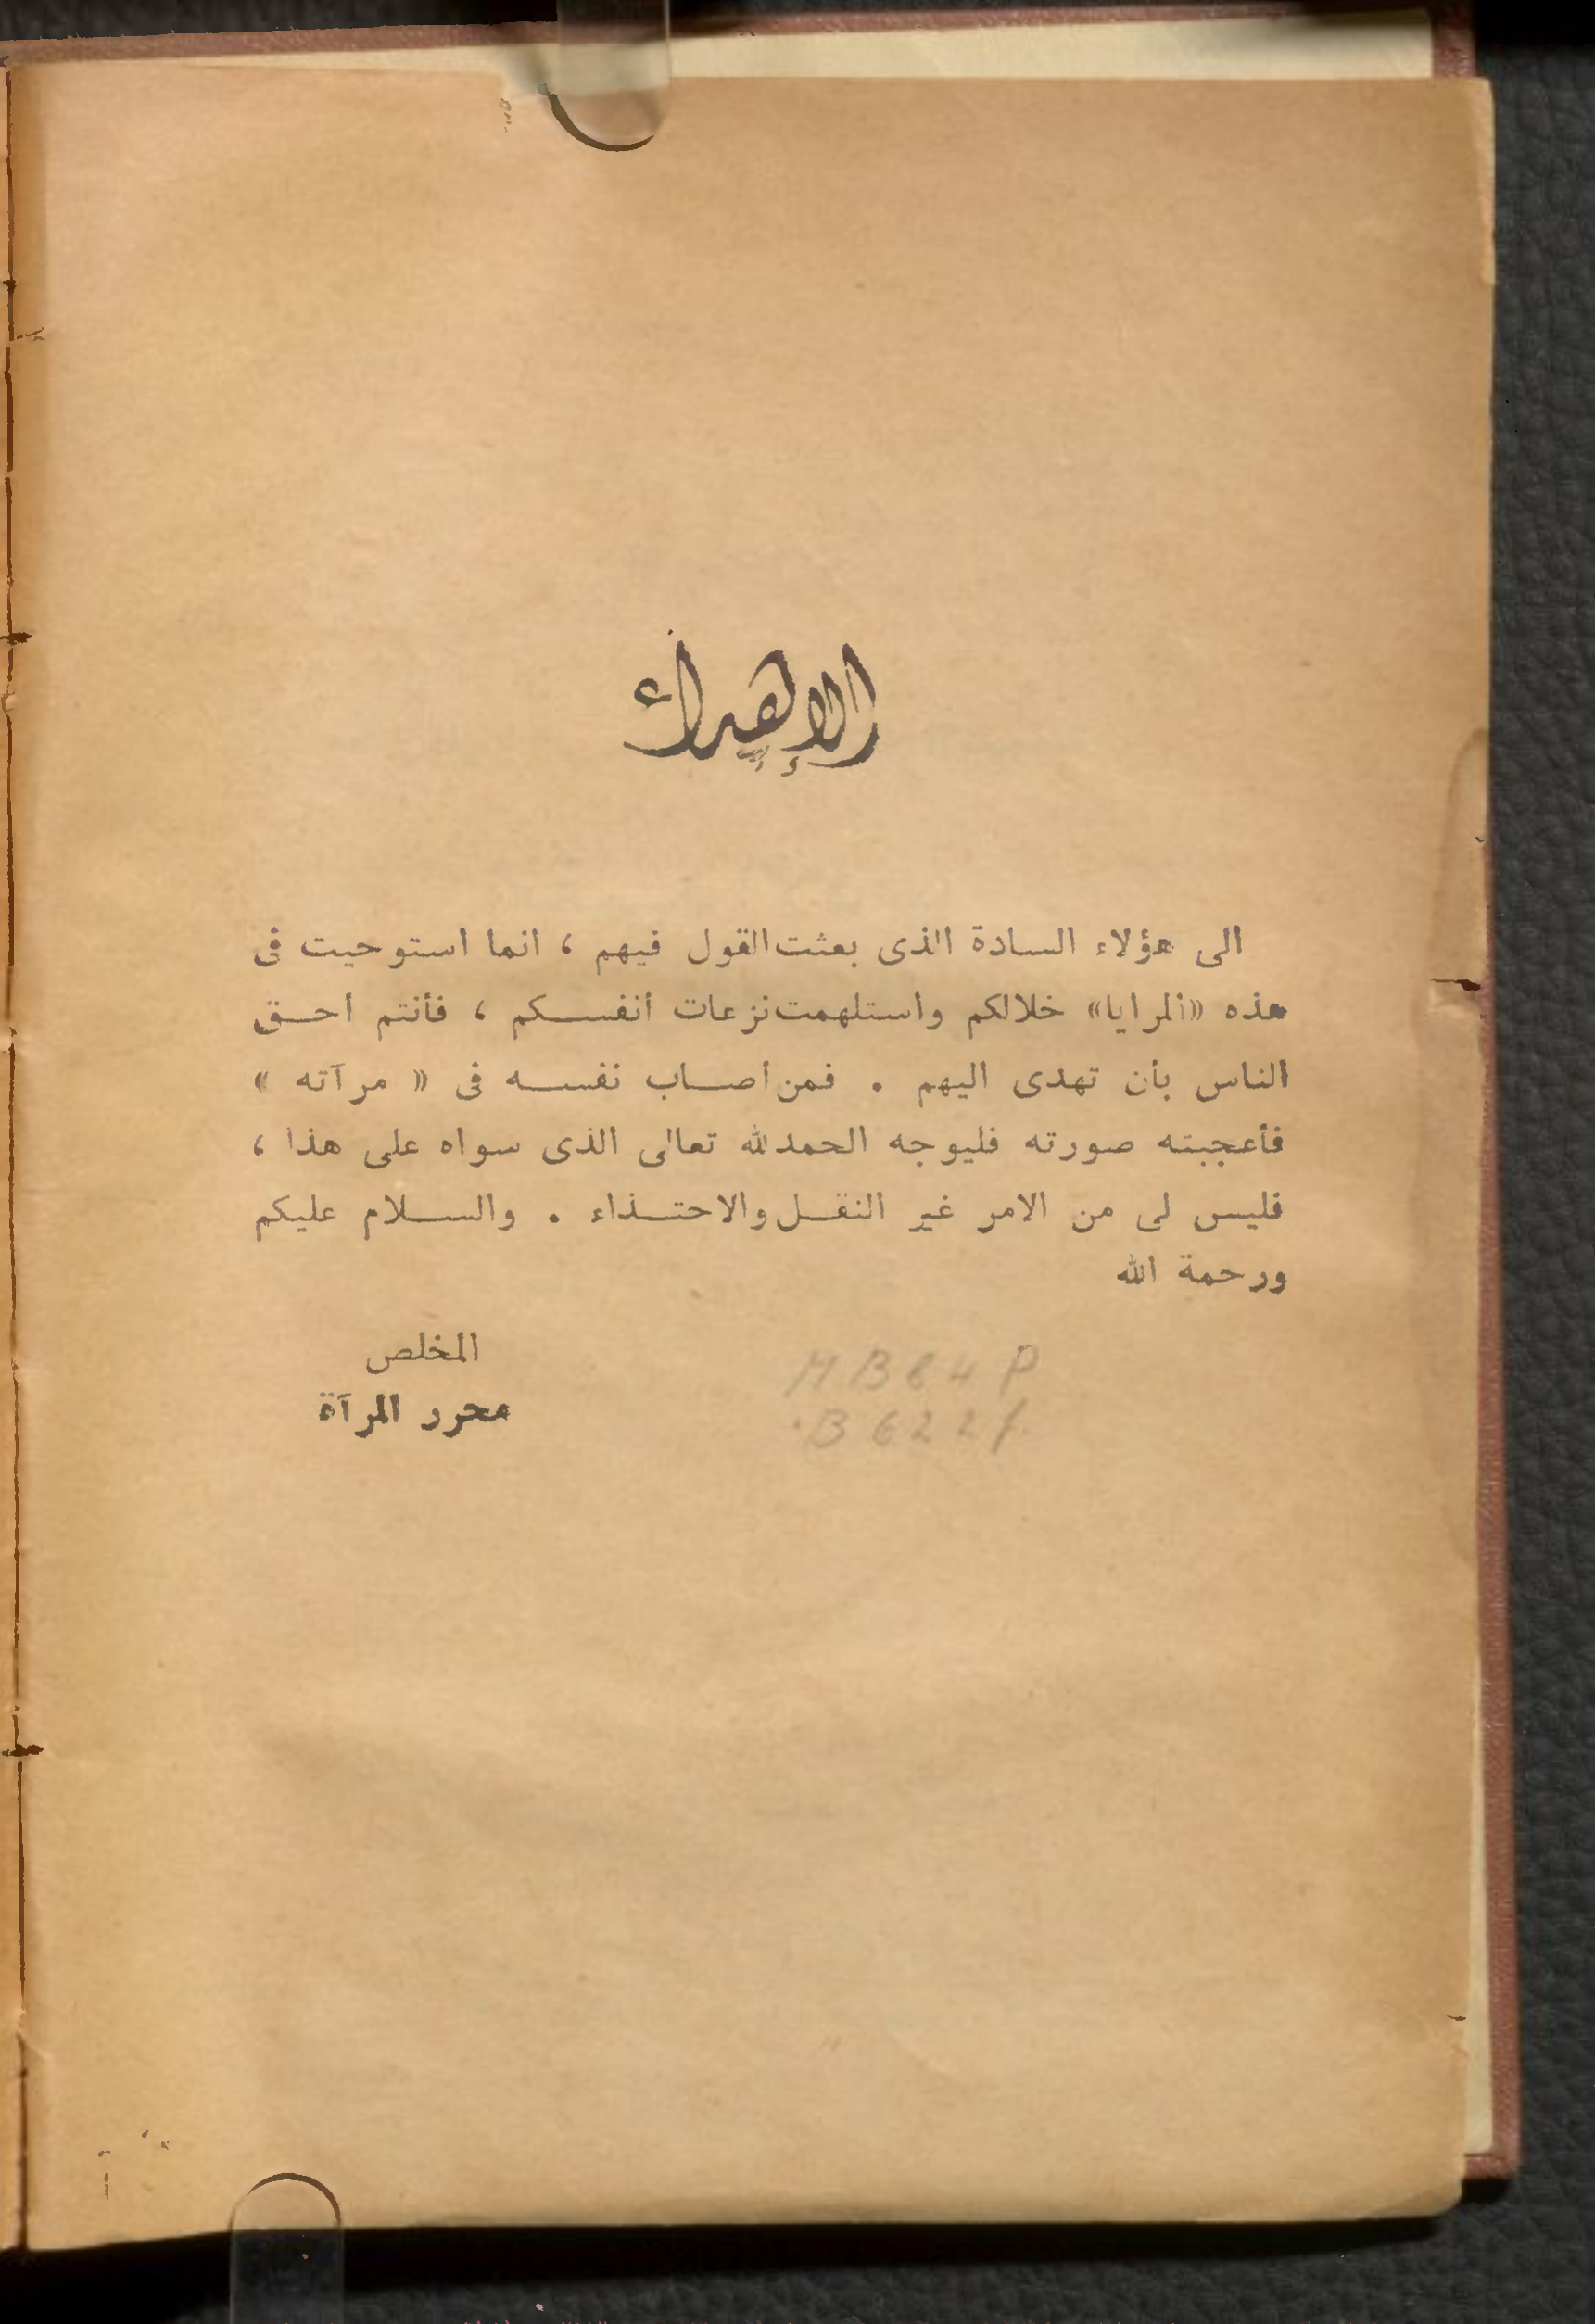 الإهداء
الى هؤلاء السادة الذى بعثت القول فيهم ، انما استوحيت فى
هذه «المرايا» خلالكم واستلهمت نزعات أنفسكم ، فأنتم أحق
الناس بأن تهدى اليهم . فمن أصاب نفسه فى « مرآته »
فأعجبته صورته فليوجه الحمد لله تعالى الذى سواه على هذا ،
فليس لى من الامر غير النقل والاحتذاء . والسلام عليكم
ورحمة الله
المخلص
محرر المرآة
B622f